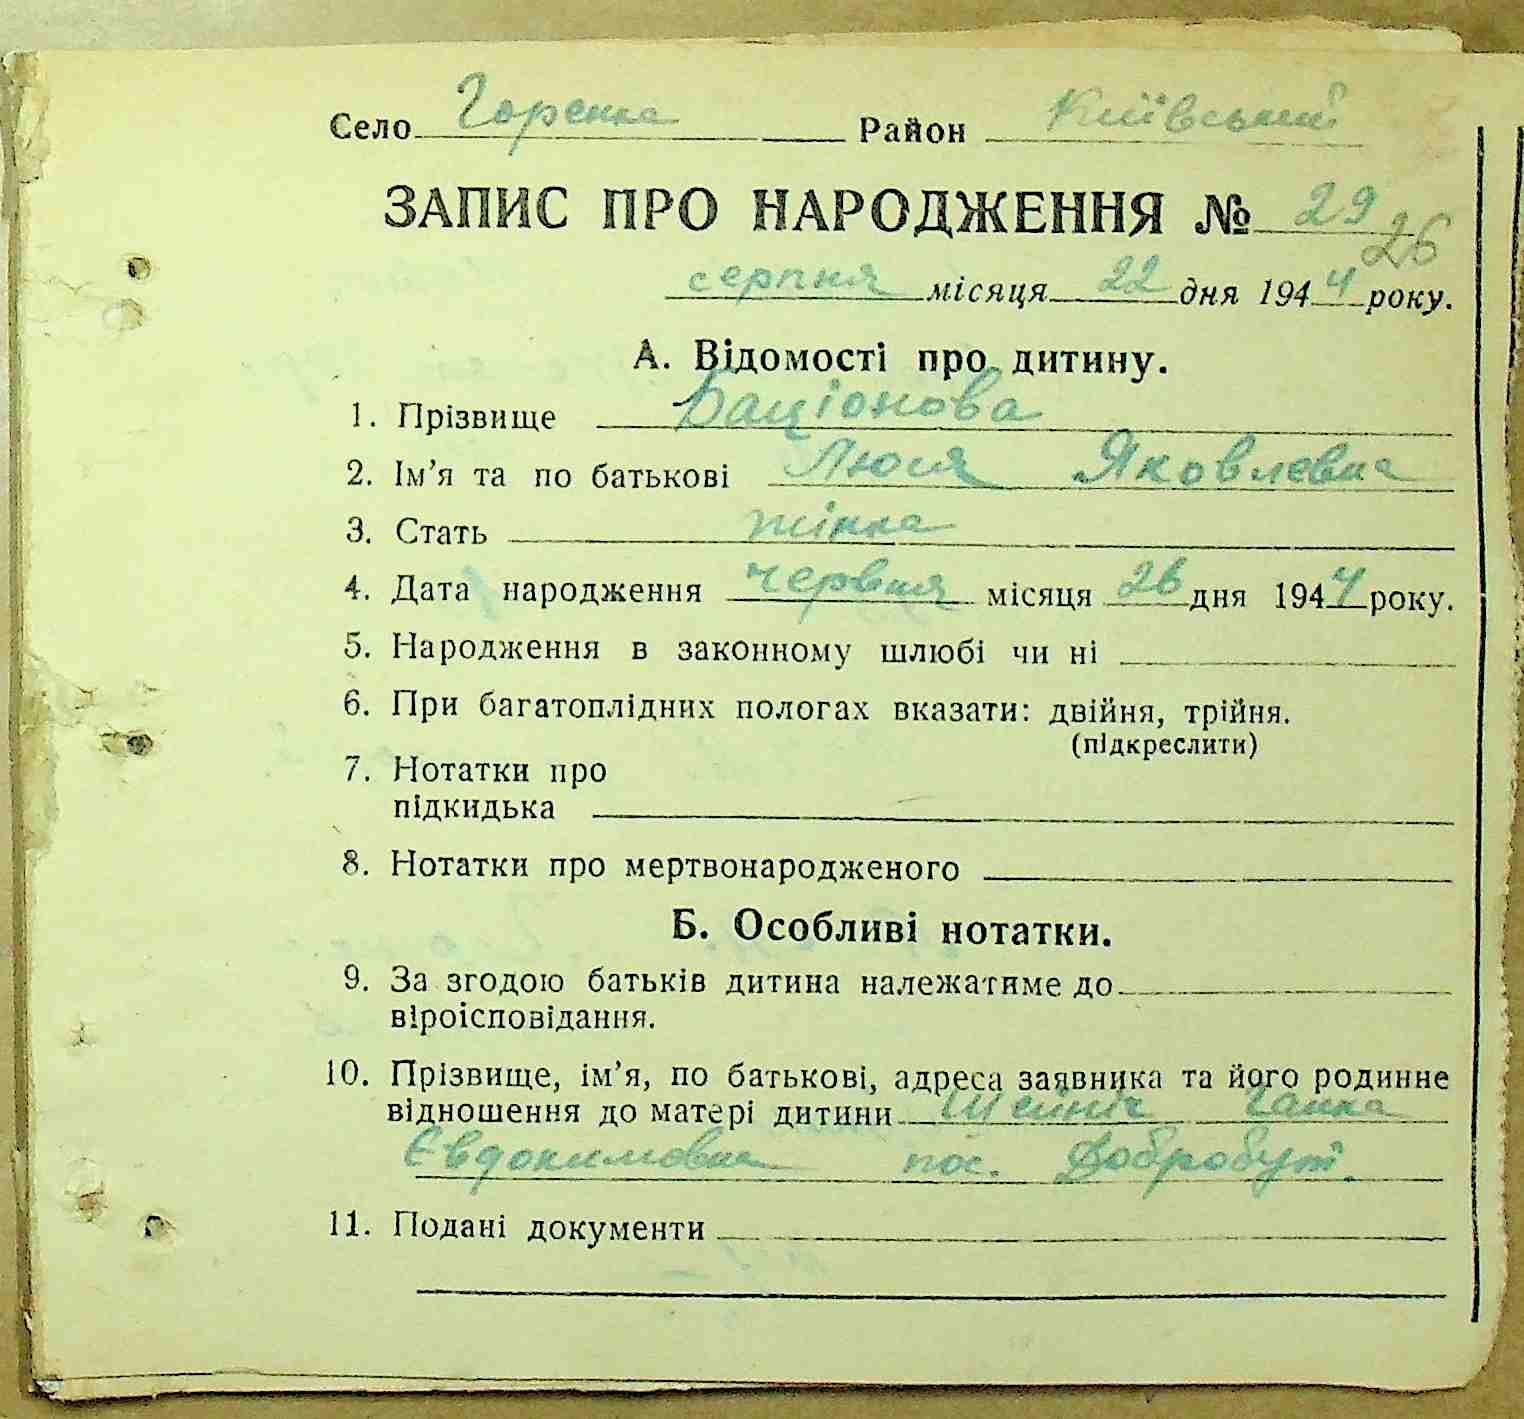 Село Горенка Район Київський
ЗАПИС ПРО НАРОДЖЕННЯ № 29
26
серпня місяця 22 дня 1944 року.
А. Відомості про дитину.
1. Прізвище Баціонова
2. Ім'я та по батькові Люся Яковлевна
3. Стать жінка
4. Дата народження червня місяця 26 дня 1944 року.
5. Народження в законному шлюбі чи ні
6. При багатоплідних пологах вказати: двійня, трійня.
(підкреслити)
7. Нотатки про
підкидька
8. Нотатки про мертвонародженого
Б. Особливі нотатки.
9. За згодою батьків дитина належатиме до
віроісповідання.
10. Прізвище, ім'я, по батькові, адреса заявника та його родинне
відношення до матері дитини Ганна
Євдокимовна пос. Добробут.
11. Подані документи